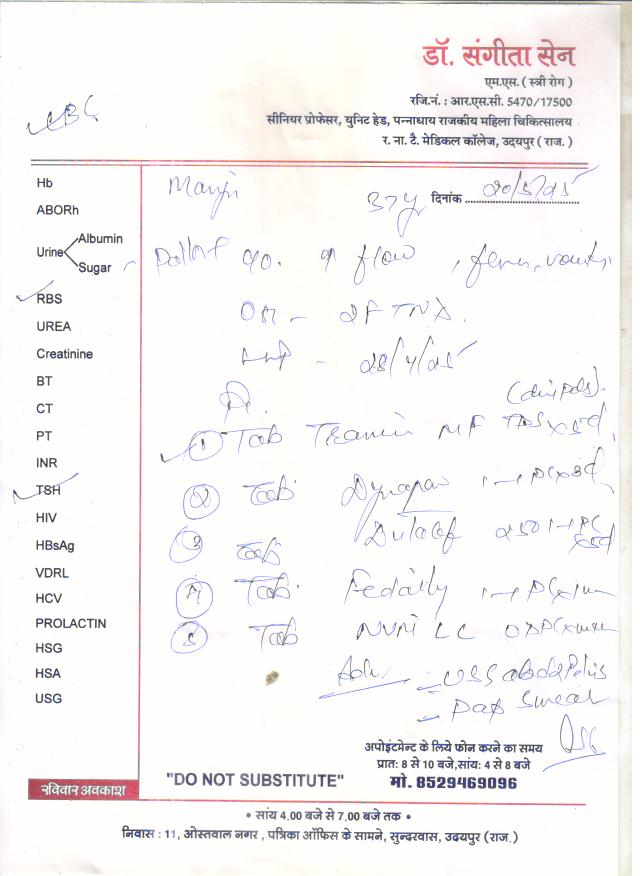 डॉ. संगीता सेन
एम.एस. ( स्त्री रोग )
रजि.नं. : आर.एस.सी. 5470/17500
सीनियर प्रोफेसर, युनिट हेड, पन्नाधाय राजकीय महिला चिकित्सालय
र. ना. टै. मेडिकल कॉलेज, उदयपुर ( राज. )
CBC
Hb
ABORh
Urine Albumin
Sugar
RBS
UREA
Creatinine
BT
CT
PT
INR
TSH
HIV
HBsAg
VDRL
HCV
PROLACTIN
HSG
HSA
USG
37y दिनांक 20/5/25
c/o. ↑ flow, fever,
28/4/25
① Tab MF TDS x 5d
② Tab Dynapar 1-1 PC x 5d
③ Tab 250 1-1 PC x 5d
④ Tab 1-1 PC
⑤ Tab LC OD PC
Adv - USG abd & Pelvis
- Pap smear
अपोइंटमेन्ट के लिये फोन करने का समय
प्रात: 8 से 10 बजे, सांय: 4 से 8 बजे
"DO NOT SUBSTITUTE" मो. 8529469096
रविवार अवकाश
• सांय 4.00 बजे से 7.00 बजे तक •
निवास : 11, ओस्तवाल नगर , पत्रिका ऑफिस के सामने, सुन्दरवास, उदयपुर (राज.)